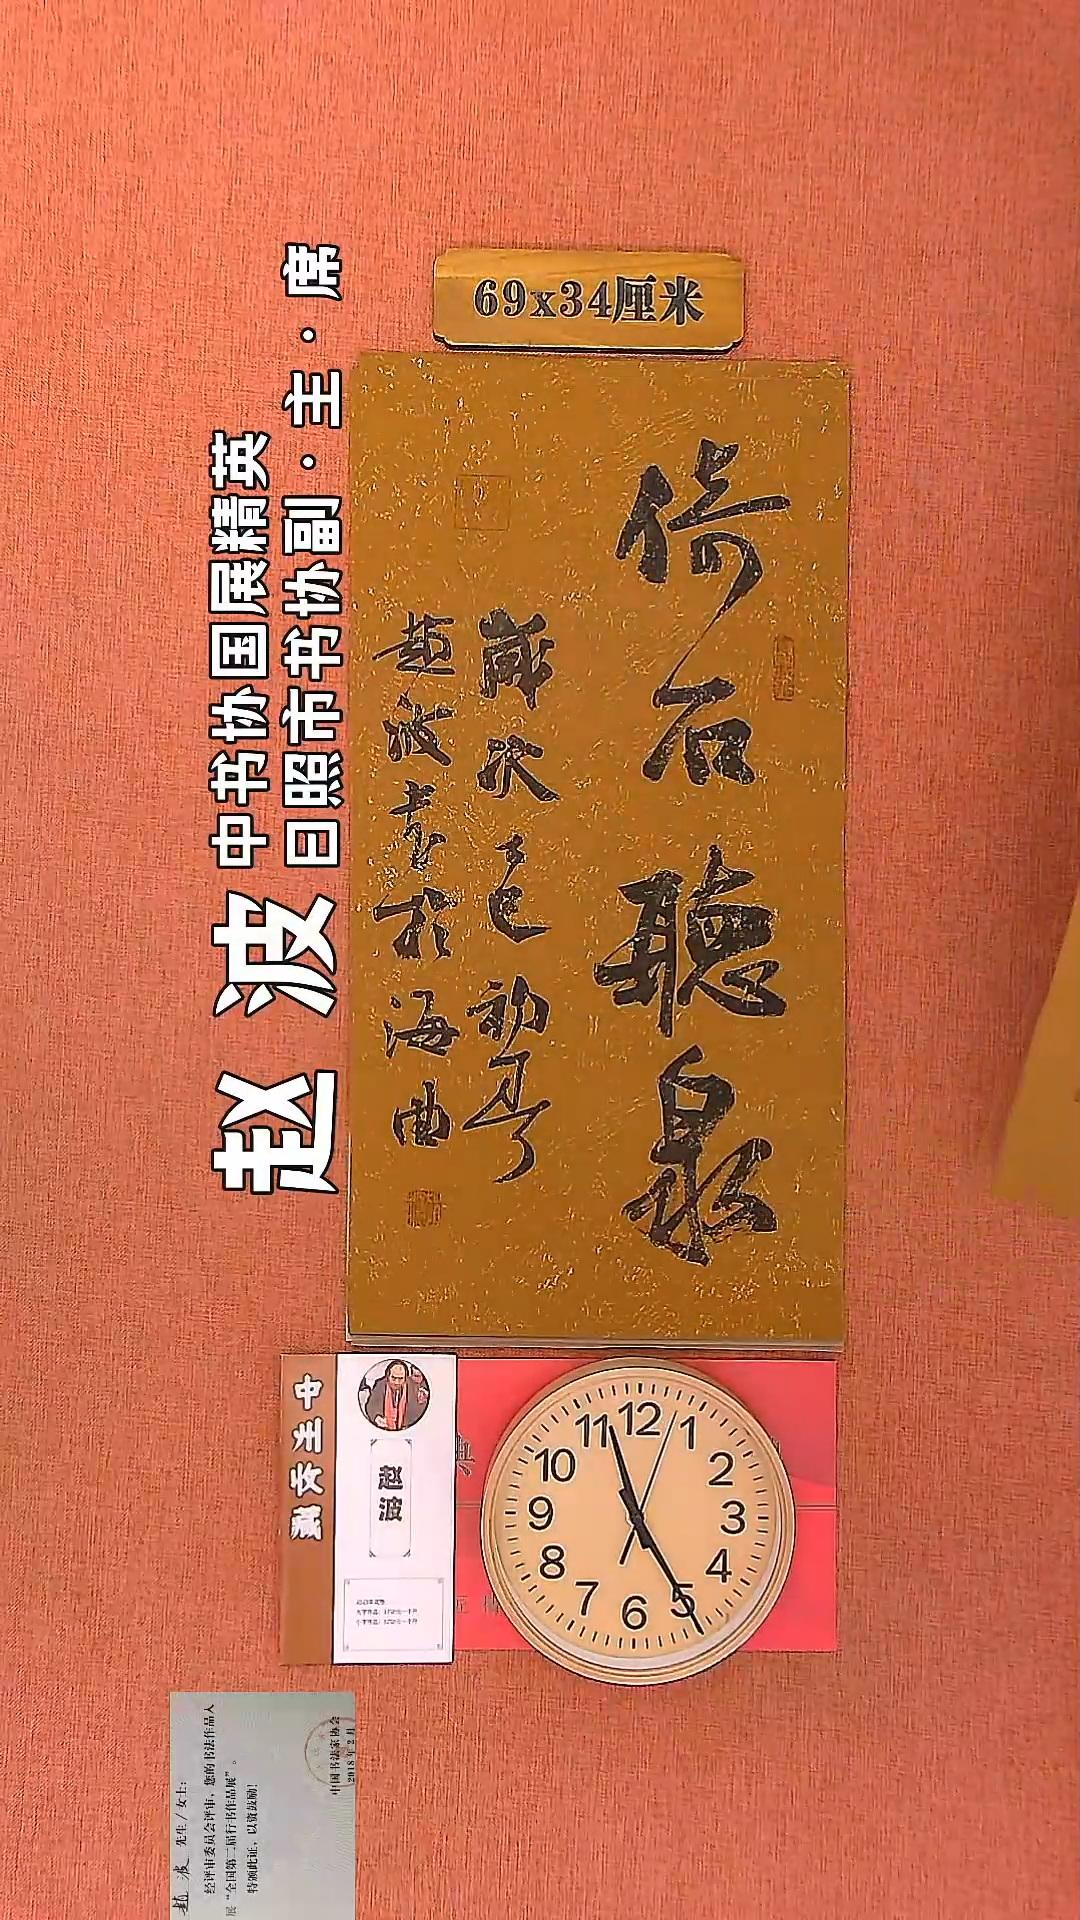 69x34厘米
倚石聽泉
歲次乙巳初夏
趙波書於海曲
赵 波
中书协国展精英
日照市书协副·主·席
赵波
11 12 1
10 2
9 3
8 4
7 6 5
趙波 先生／女士：
经评审委员会评审，您的书法作品入
展“全国第二届行书作品展”。
特颁此证，以资鼓励！
中国书法家协会
2018年2月